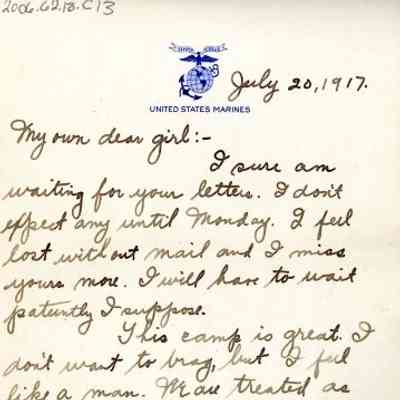 2006.62.18.C13
July 20, 1917.
UNITED STATES MARINES
My own dear girl:-
I sure am
waiting for your letters. I don't
expect any until Monday. I feel
lost without mail and I miss
yours more. I will have to wait
patiently I suppose.
This camp is great. I
don't want to brag, but I feel
like a man. We are treated as